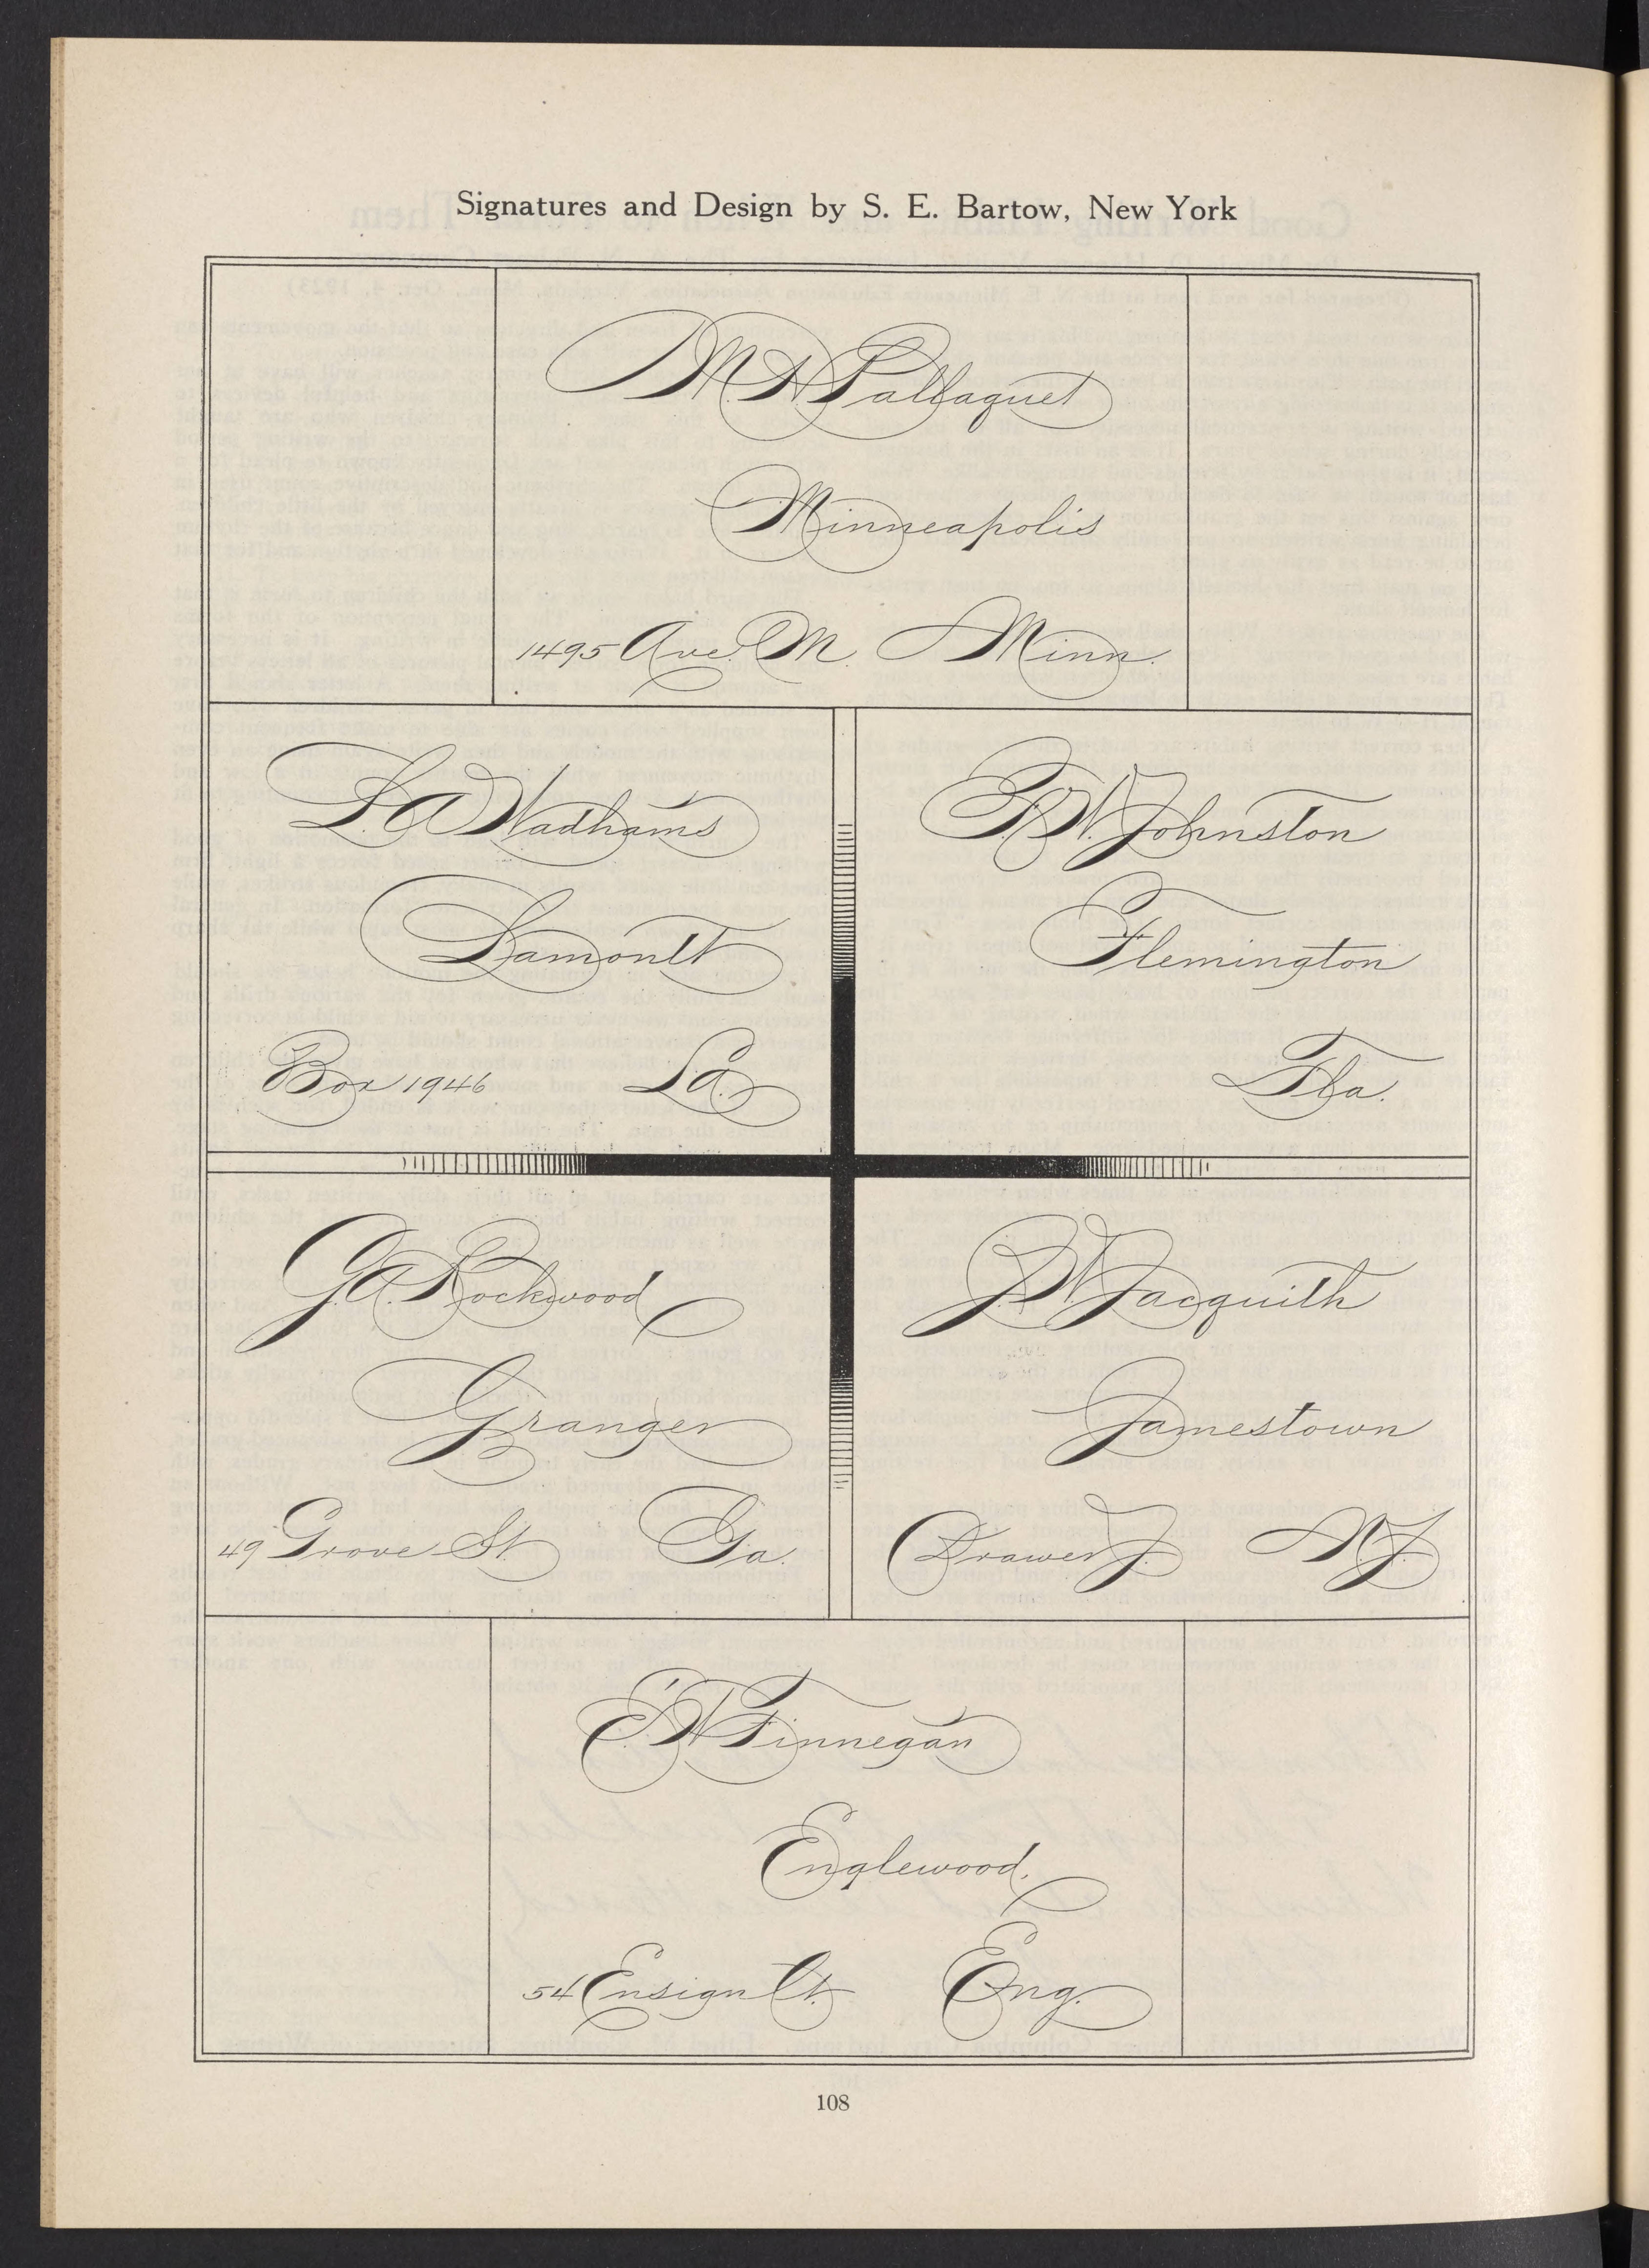 Signatures and Design by S. E. Bartow, New York
M. N. Pallaquet
Minneapolis
1495 Ave. M. Minn.
L. A. Wadhams
Lamontt
Box 1946 La.
W. Johnston
Flemington
Fla.
G. A. Rockwood
Granger
49 Grove St. Ga.
J. W. Jacquith
Jamestown
Drawer J. N.J.
E. W. Finnegan
Englewood,
54 Ensign Ct. Eng.
108